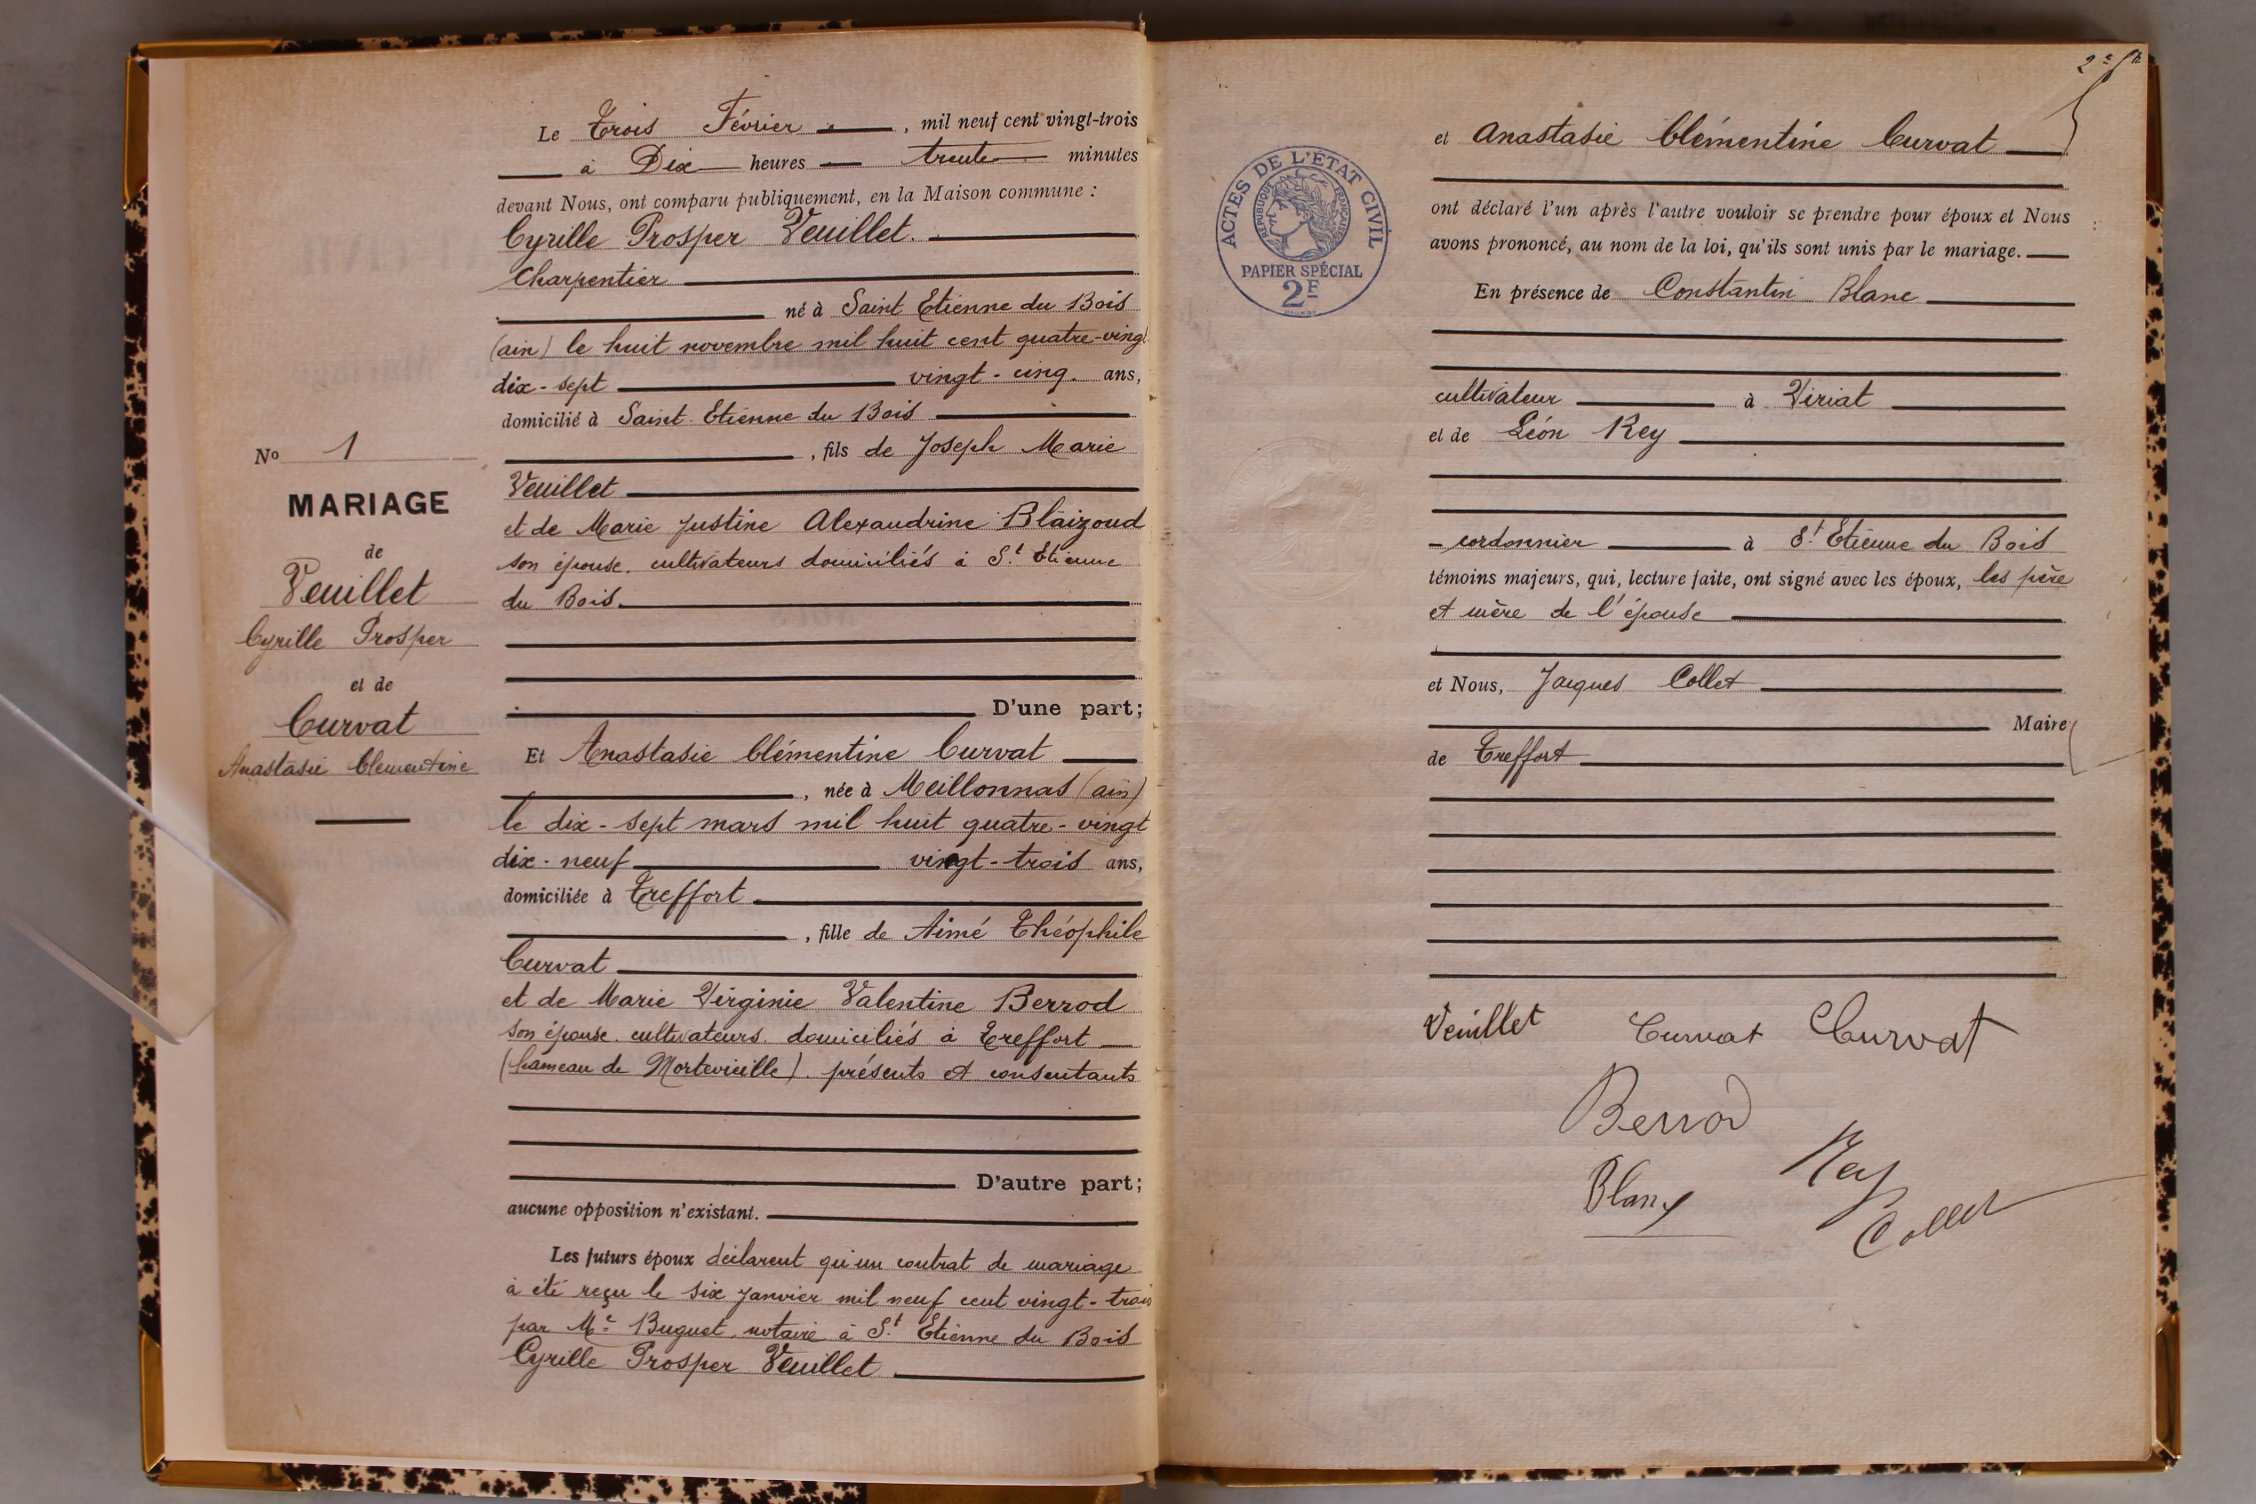 Le Trois Février, mil neuf cent vingt-trois
à Dix heures trente minutes
devant Nous, ont comparu publiquement, en la Maison commune :
Cyrille Prosper Veuillet.
Charpentier
né à Saint Etienne du Bois
(ain) le huit novembre mil huit cent quatre-vingt
dix-sept vingt-cinq. ans,
domicilié à Saint-Etienne du Bois
, fils de Joseph Marie
Veuillet
et de Marie Justine Alexandrine Blaizoud
son épouse. cultivateurs domiciliés à St. Etienne
du Bois.
D'une part;
Et Anastasie Clémentine Curvat
, née à Meillonnas (ain)
le dix-sept mars mil huit quatre-vingt
dix-neuf vingt-trois ans,
domiciliée à Treffort
, fille de Aimé Théophile
Curvat
et de Marie Virginie Valentine Berrod
son épouse. cultivateurs. domiciliés à Treffort
(hameau de Mortevieille). présents et consentants
D'autre part;
aucune opposition n'existant.
Les futurs époux déclarent qu'un contrat de mariage
à été reçu le six janvier mil neuf cent vingt-trois
par Me Buguet, notaire à St. Etienne du Bois
Cyrille Prosper Veuillet
No 1
MARIAGE
de
Veuillet
Cyrille Prosper
et de
Curvat
Anastasie Clementine
ACTES DE L'ÉTAT CIVIL
RÉPUBLIQUE FRANÇAISE
PAPIER SPÉCIAL
2F
et Anastasie Clémentine Curvat
ont déclaré l'un après l'autre vouloir se prendre pour époux et Nous
avons prononcé, au nom de la loi, qu'ils sont unis par le mariage.
En présence de Constantin Blanc
cultivateur à Viriat
et de Léon Rey
cordonnier à St. Etienne du Bois
témoins majeurs, qui, lecture faite, ont signé avec les époux, les père
et mère de l'épouse
et Nous, Jacques Collet
Maire
de Treffort
Veuillet Curvat Curvat
Berrod
Blanc Rey
Collet